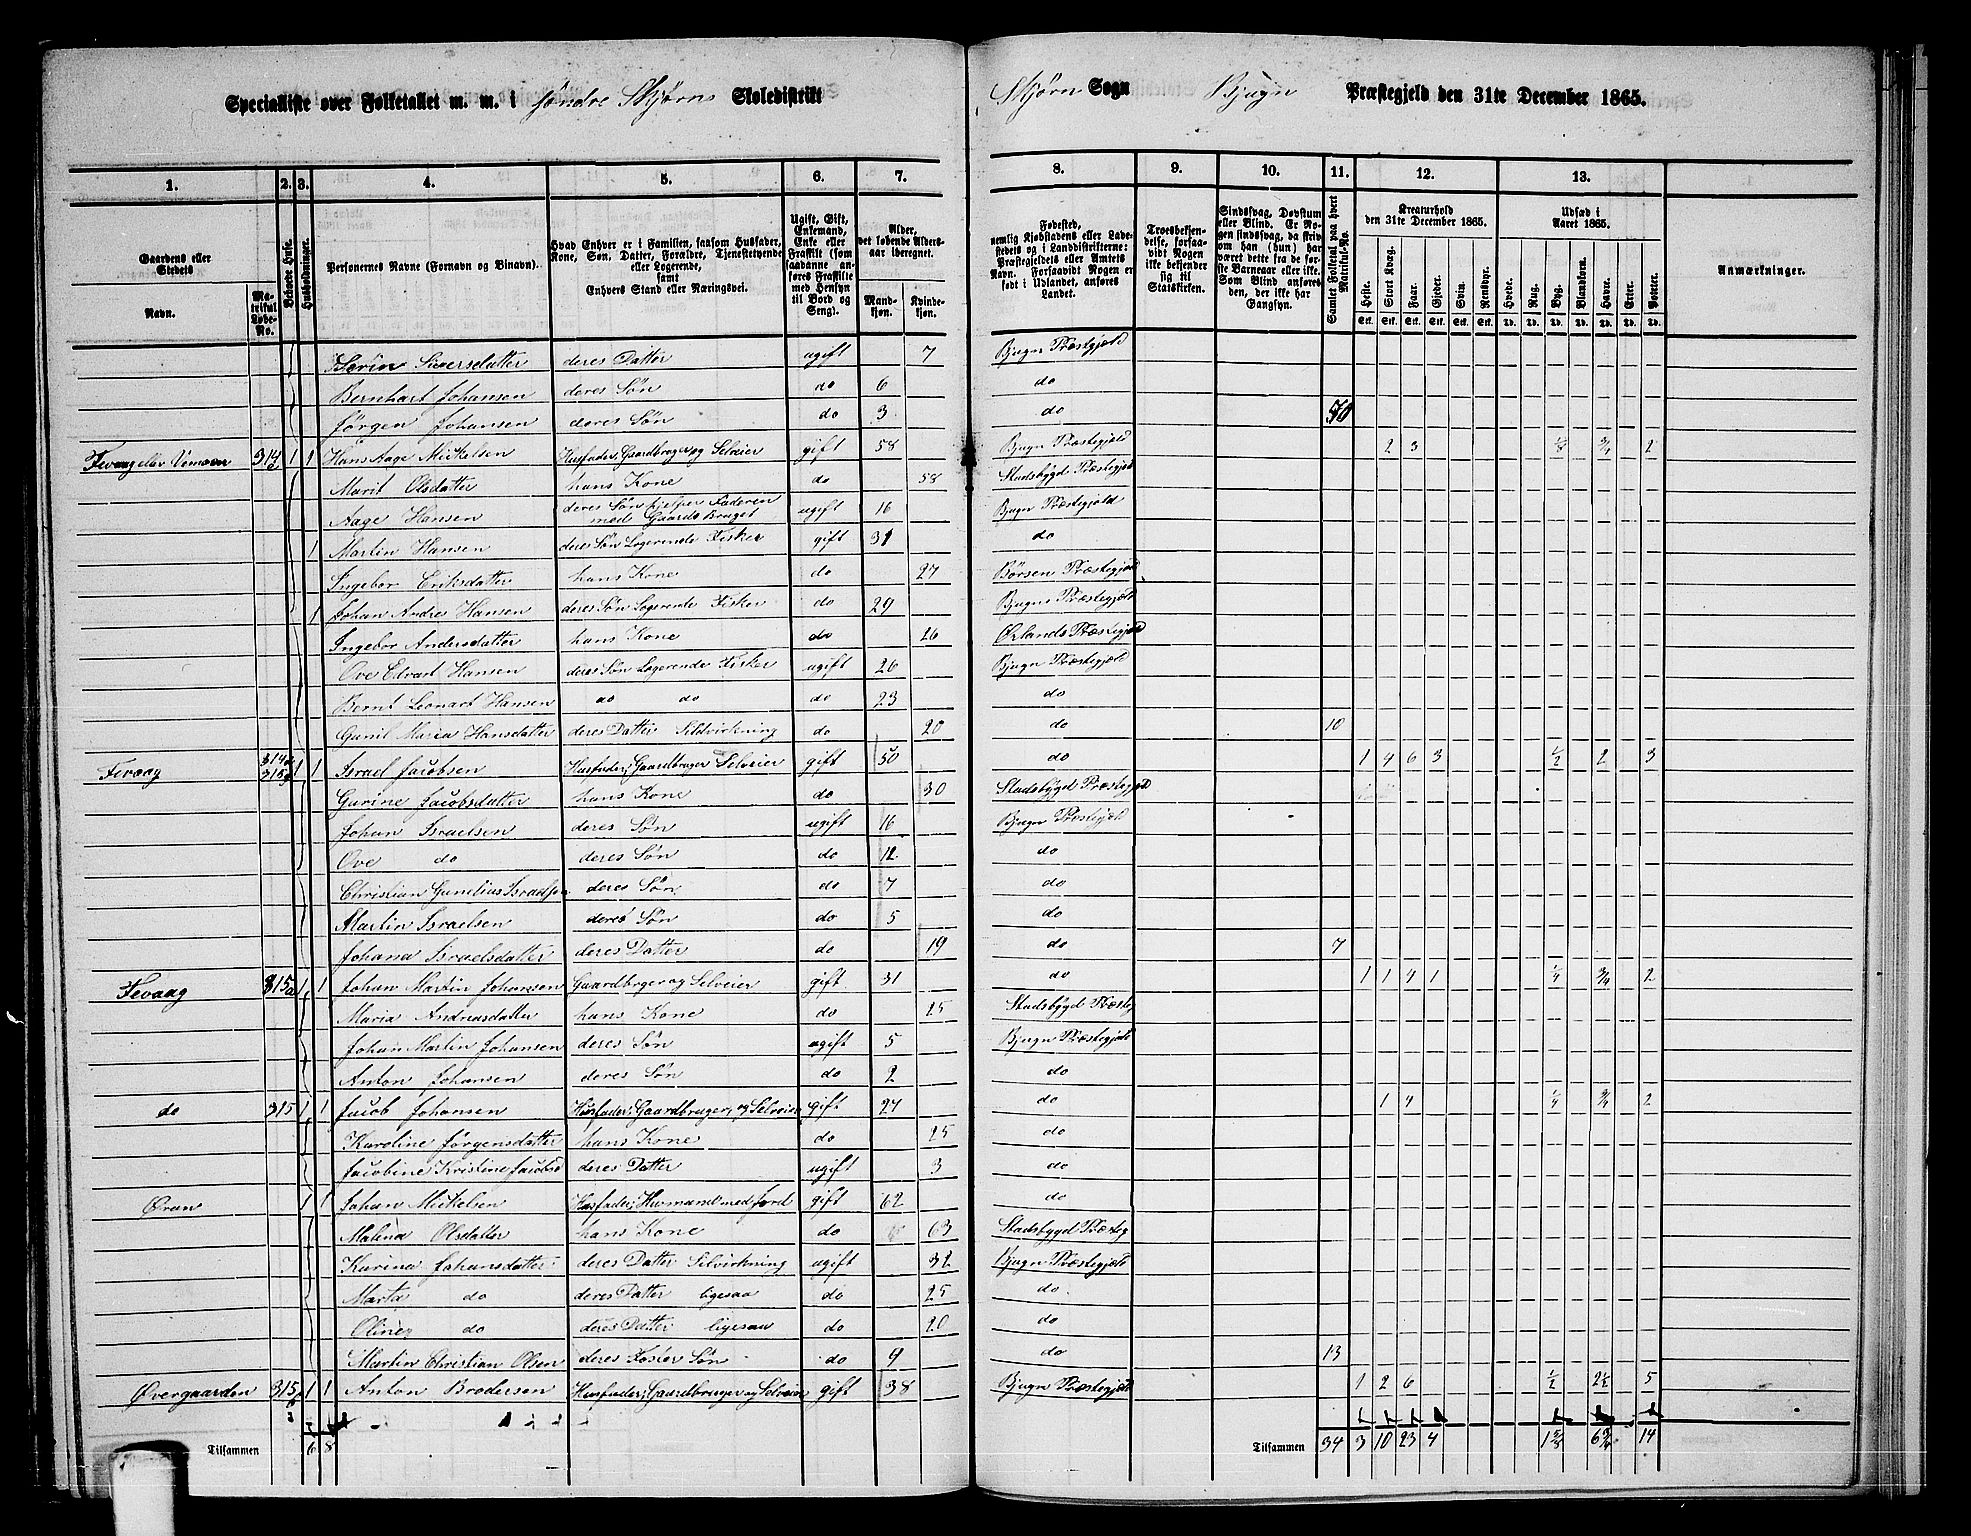 Specialliste over Folketallet m. m. i Søndre Skjørn Skoledistrikt Skjørn Sogn Bjugn Præstegjeld den 31te December 1865.
1. 2. 3. 4. 5. 6. 7. 8. 9. 10. 11. 12. 13.
Gaardens eller Stedets
Navn.
Matrikul Løbe-No.
Beboede Huse.
Husholdninger.
Personernes Navne (Fornavn og Binavn).
Hvad Enhver er i Familien, saasom Husfader, Kone, Søn, Datter, Forældre, Tjenestetyende eller Logerende, samt Enhvers Stand eller Næringsvei.
Ugift, Gift, Enkemand, Enke eller Fraskilt (som saadanne anføres Fraskilte med Hensyn til Bord og Seng).
Alder, det løbende Alders-aar iberegnet.
Mandkjøn. Kvindekjøn.
Fødested, nemlig Kjøbstadens eller Ladestedets og i Landdistrikterne: Præstegjeldets eller Amtets Navn. Forsaavidt Nogen er født i Udslandet, anføres Landet.
Troesbekjendelse, forsaavidt Nogen ikke bekjender sig til Statskirken.
Sindssvag, Døvstum eller Blind. Er Nogen sindssvag, da skriv om han (hun) har været dette fra de første Barneaar eller ikke. Som Blind anføres den, der ikke har Gangsyn.
Samlet Folketal paa hvert Matrikul-No.
Kreaturhold den 31te December 1865.
Heste. Stort Kvæg. Faar. Gjeder. Svin. Rensdyr.
Udsæd i Aaret 1865.
Hvede. Rug. Byg. Blandkorn. Havre. Erter. Poteter.
Anmærkninger.
Stk. Stk. Stk. Stk. Stk. Stk. Td. Td. Td. Td. Td. Td. Td.
Siversdatter deres Datter ugift 7 Bjugn Præstegjæld
Bernhart Johansen deres Søn do 6 do
Jørgen Johansen deres Søn do 3 do
Fevaag eller 314 1 1 Hans Aage Mickelsen Husfader, Gaardbruger og Selveier gift 58 Bjugn Præstegjæld 2 3 1/8 3/4 2
Marit Olsdatter hans Kone do 58 Stadsbygd Præstegjæld
Aage Hansen deres Søn hjelper Faderen med Gaards Bruget ugift 16 Bjugn Præstegjæld
1 Martin Hansen deres Søn Logerende Fisker gift 31 do
Ingebor Eriksdatter hans Kone do 27 Børsen Præstegjæld
1 Johan Andre Hansen deres Søn Logerende Fisker do 29 Bjugn Præstegjæld
Ingebor Andersdatter hans Kone do 26 Ørlands Præstegjæld
Ove Edvart Hansen deres Søn Logerende Fisker ugift 26 Bjugn Præstegjæld
Bernt Leonart Hansen do do do 23 do
Gunil Maria Hansdatter deres Datter Selvirkning do 20 do 10
Fevaag 1 1 Israel Jacobsen Husfader, Gaardbruger Selveier gift 50 do 1 4 6 3 1/2 2 3
Gurine Jacobsdatter hans Kone do 30 Stadsbygd Præstegjæld
Johan Israelsen deres Søn ugift 16 Bjugn Præstegjæld
Ove do deres Søn do 12 do
Christian Gunelius Israelsen deres Søn do 7 do
Martin Israelsen deres Søn do 5 do
Johana Israelsdatter deres Datter do 19 do 7
Fevaag 315a 1 1 Johan Martin Johansen Gaardbruger og Selveier gift 31 do 1 1 4 1 1/4 3/4 2
Maria Andreasdatter hans Kone do 25 Stadsbygd Præsteg
Johan Martin Johansen deres Søn ugift 5 Bjugn Præstegjæld
Anton Johansen deres Søn do 2 do
do 315 1 1 Jacob Johansen Husfader, Gaardbruger, og Selveier gift 27 do 1 4 1/4 3/4 2
Karoline Jørgensdatter hans Kone do 25 do
Jacobine Kristine Jacobsd deres Datter ugift 3 do
Øran 1 1 Johan Mickelsen Husfader, Husmand med Jord gift 62 do
Malena Olsdatter hans Kone do 63 Stadsbygd Præsteg
Karina Johansdatter deres Datter Selvirkning ugift 32 Bjugn Præstegjæld
Marta do deres Datter ligesaa do 25 do
Oline do deres Datter ligesaa do 20 do
Martin Christian Olsen deres Foster Søn do 9 do 13
Øvergaarden 315 1 1 Anton Brodersen Husfader, Gaardbruger og Selveier gift 38 Bjugn Præstegjæld 1 2 6 1/2 2 1/2 5
Tilsammen 6 8 Tilsammen 34 3 10 23 4 1 5/8 6 3/4 14